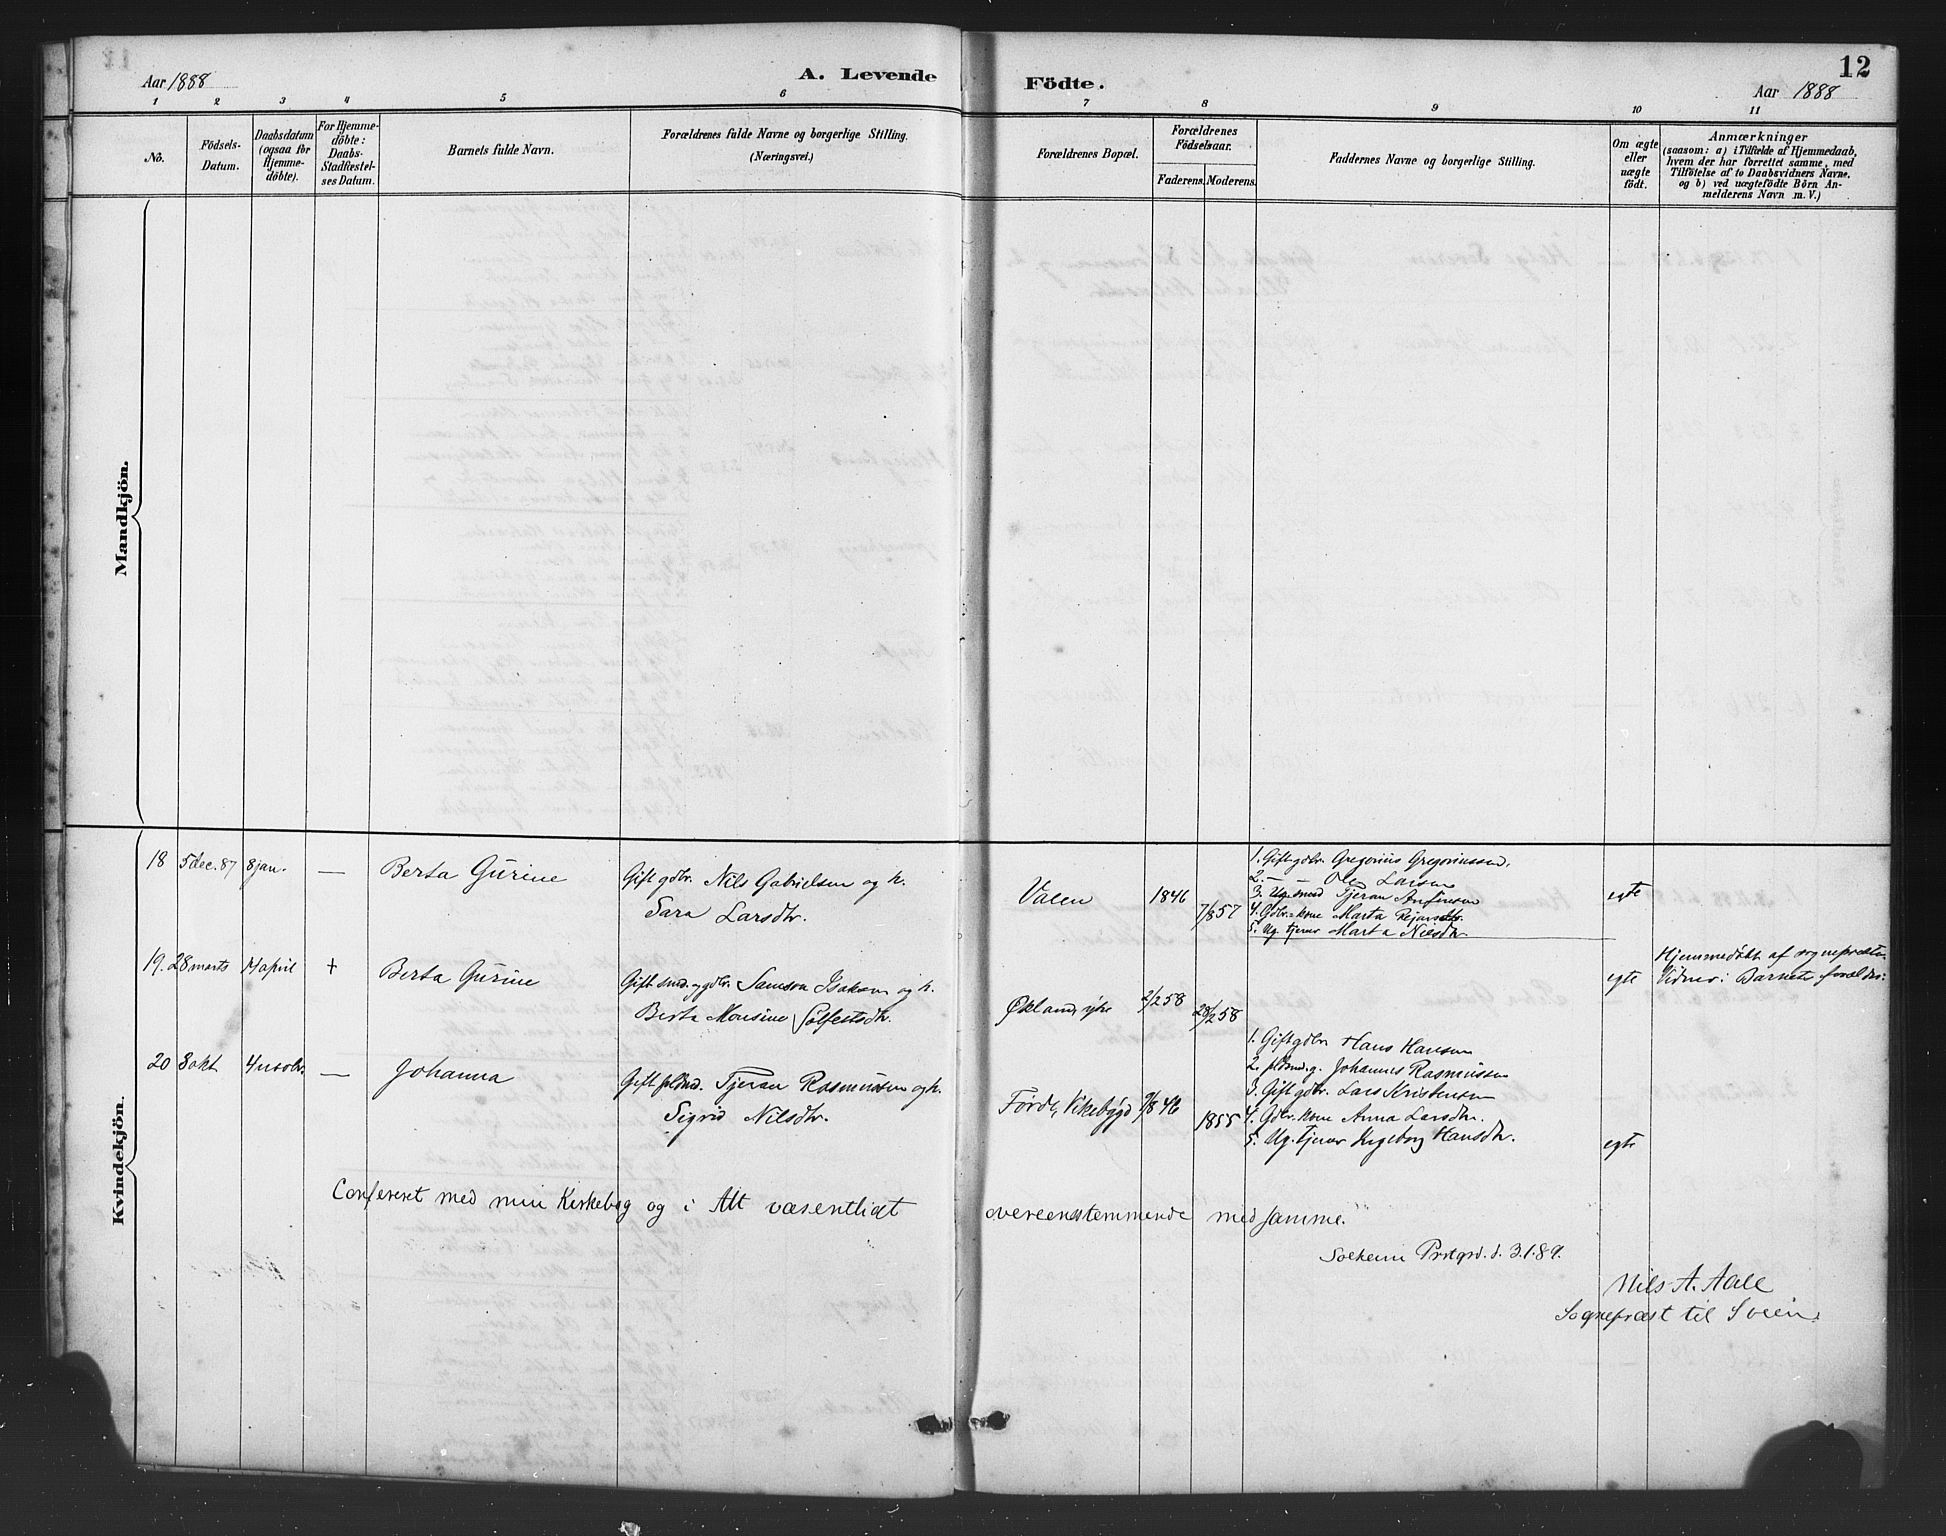 Aar 1888
A. Levende
Födte.
Aar 1888
12
1 2 3 4 5 6 7 8 9 10 11
No.
Födsels-
Datum.
Daabsdatum
(ogsaa for
Hjemme-
döbte).
For Hjemme-
döbte:
Daabs-
Stadfæstel-
ses Datum.
Barnets fulde Navn.
Forældrenes fulde Navne og borgerlige Stilling.
(Næringsvei.)
Forældrenes Bopæl.
Forældrenes
Födselsaar.
Faderens. Moderens.
Faddernes Navne og borgerlige Stilling.
Om ægte
eller
uægte
födt.
Anmærkninger
(saasom: a) i Tilfælde af Hjemmedaab,
hvem der har forrettet samme, med
Tilföielse af to Daabsvidners Navne,
og b) ved uægtefödte Börn An-
melderens Navn m. V.)
Mandkjön.
Kvindekjön.
18 5 dec. 87 8 jan. — Berta Gurine
Gift gdbr. Nils Gabrielsen og h.
Sara Larsdtr.
Valen 1846 7/8 57
1. Gift gdbr. Gregorius Gregoriussen,
2. — — Ole Larsen
3. Ug. smed Tjeran Anfinsen
4. Gdbr. kone Marta Rejarsdtr.
5. Ug. tjener Marta Nilsdtr.
egte
19. 28 marts 14 april + Berta Gurine
Gift smed og gdbr. Samson Isaksen og h.
Berta Monsine Sölfestsdtr.
Økland, ytre 2/2 58 28/2 58
egte
Hjemmedöbt af sognepræsten
Vidner: Barnets forældre:
20 8 okt. 4 novbr. — Johanna
Gift pldsmd. Tjeran Rasmussen og h.
Sigrid Nilsdtr.
Förde, Vikebygd 9/8 46 1855
1. Gift gdbr. Hans Hansen
2. pldsmd. g. Johannes Rasmussen
3. Gift gdbr. Lars Kristensen
4. Gdbr. kone Anna Larsdtr.
5. Ug. tjener Ingeborg Hansdtr.
egte
Confereret med min Kirkebog og i Alt væsentligt overeensstemmende med samme.
Prstgrd. d. 3.1.89.
Nils A. Aale
Sognepræst til Sveen.